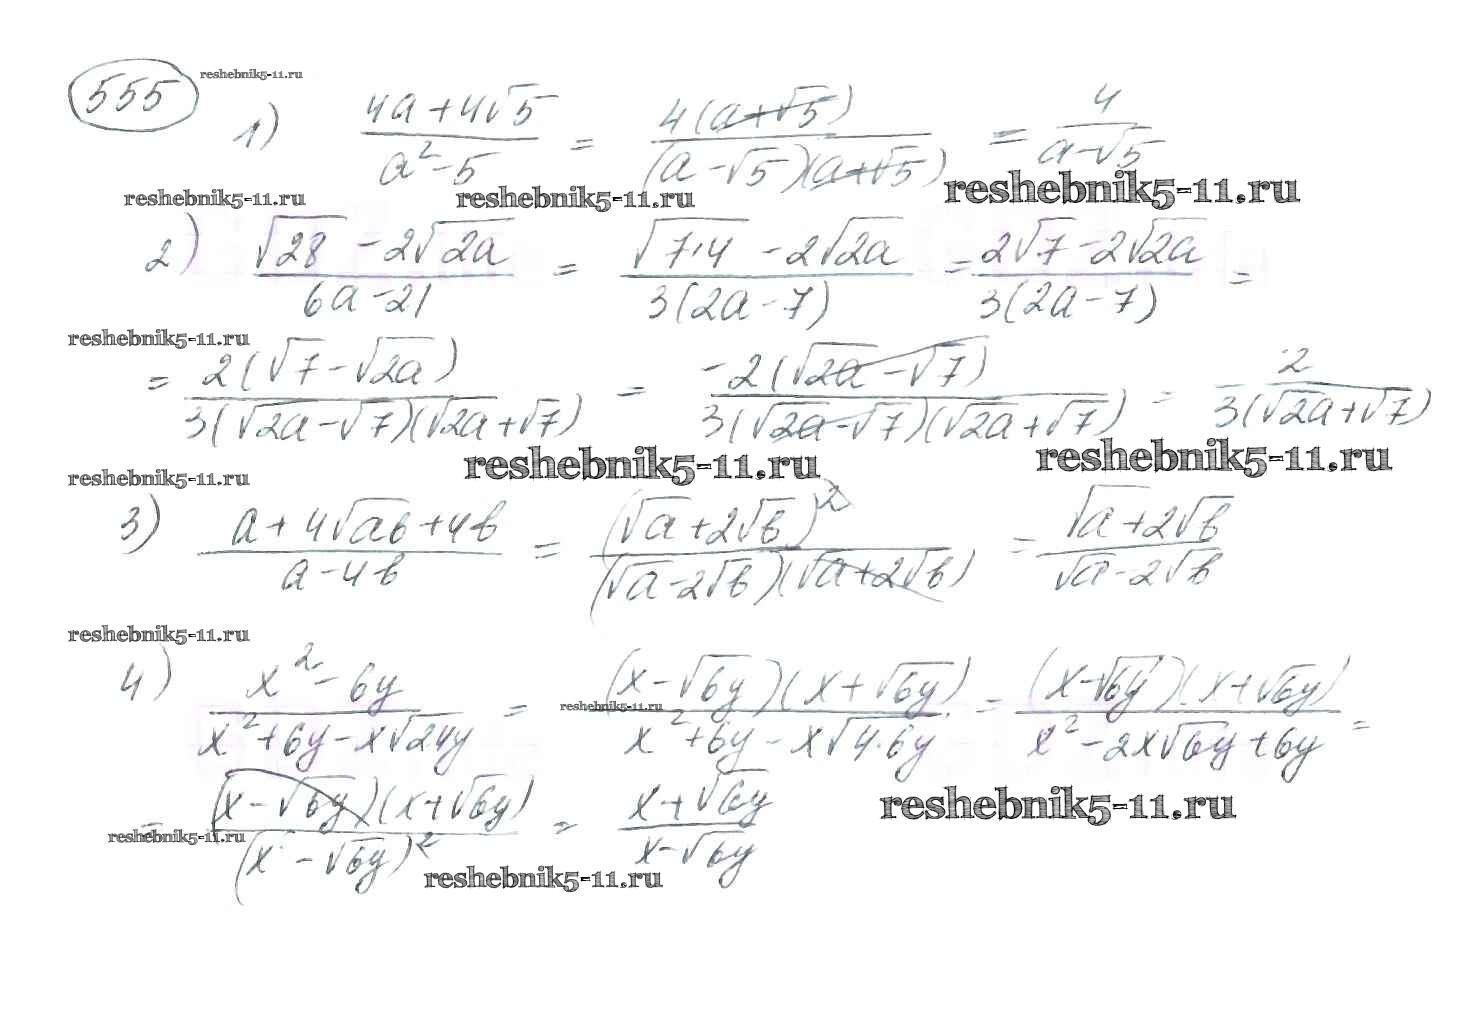 555 reshebnik5-11.ru
1) (4a+4√5)/(a²-5) = 4(a+√5)/((a-√5)(a+√5)) = 4/(a-√5)
reshebnik5-11.ru reshebnik5-11.ru reshebnik5-11.ru
2) (√28-2√2a)/(6a-21) = (√7·4-2√2a)/(3(2a-7)) = (2√7-2√2a)/(3(2a-7)) =
reshebnik5-11.ru
= 2(√7-√2a)/(3(√2a-√7)(√2a+√7)) = -2(√2a-√7)/(3(√2a-√7)(√2a+√7)) = -2/(3(√2a+√7))
reshebnik5-11.ru reshebnik5-11.ru reshebnik5-11.ru
3) (a+4√ab+4b)/(a-4b) = (√a+2√b)²/((√a-2√b)(√a+2√b)) = (√a+2√b)/(√a-2√b)
reshebnik5-11.ru
4) (x²-6y)/(x²+6y-x√24y) = (x-√6y)(x+√6y)/(x²+6y-x√4·6y) = (x-√6y)(x+√6y)/(x²-2x√6y+6y) =
reshebnik5-11.ru
= (x-√6y)(x+√6y)/(x-√6y)² = (x+√6y)/(x-√6y)
reshebnik5-11.ru reshebnik5-11.ru reshebnik5-11.ru